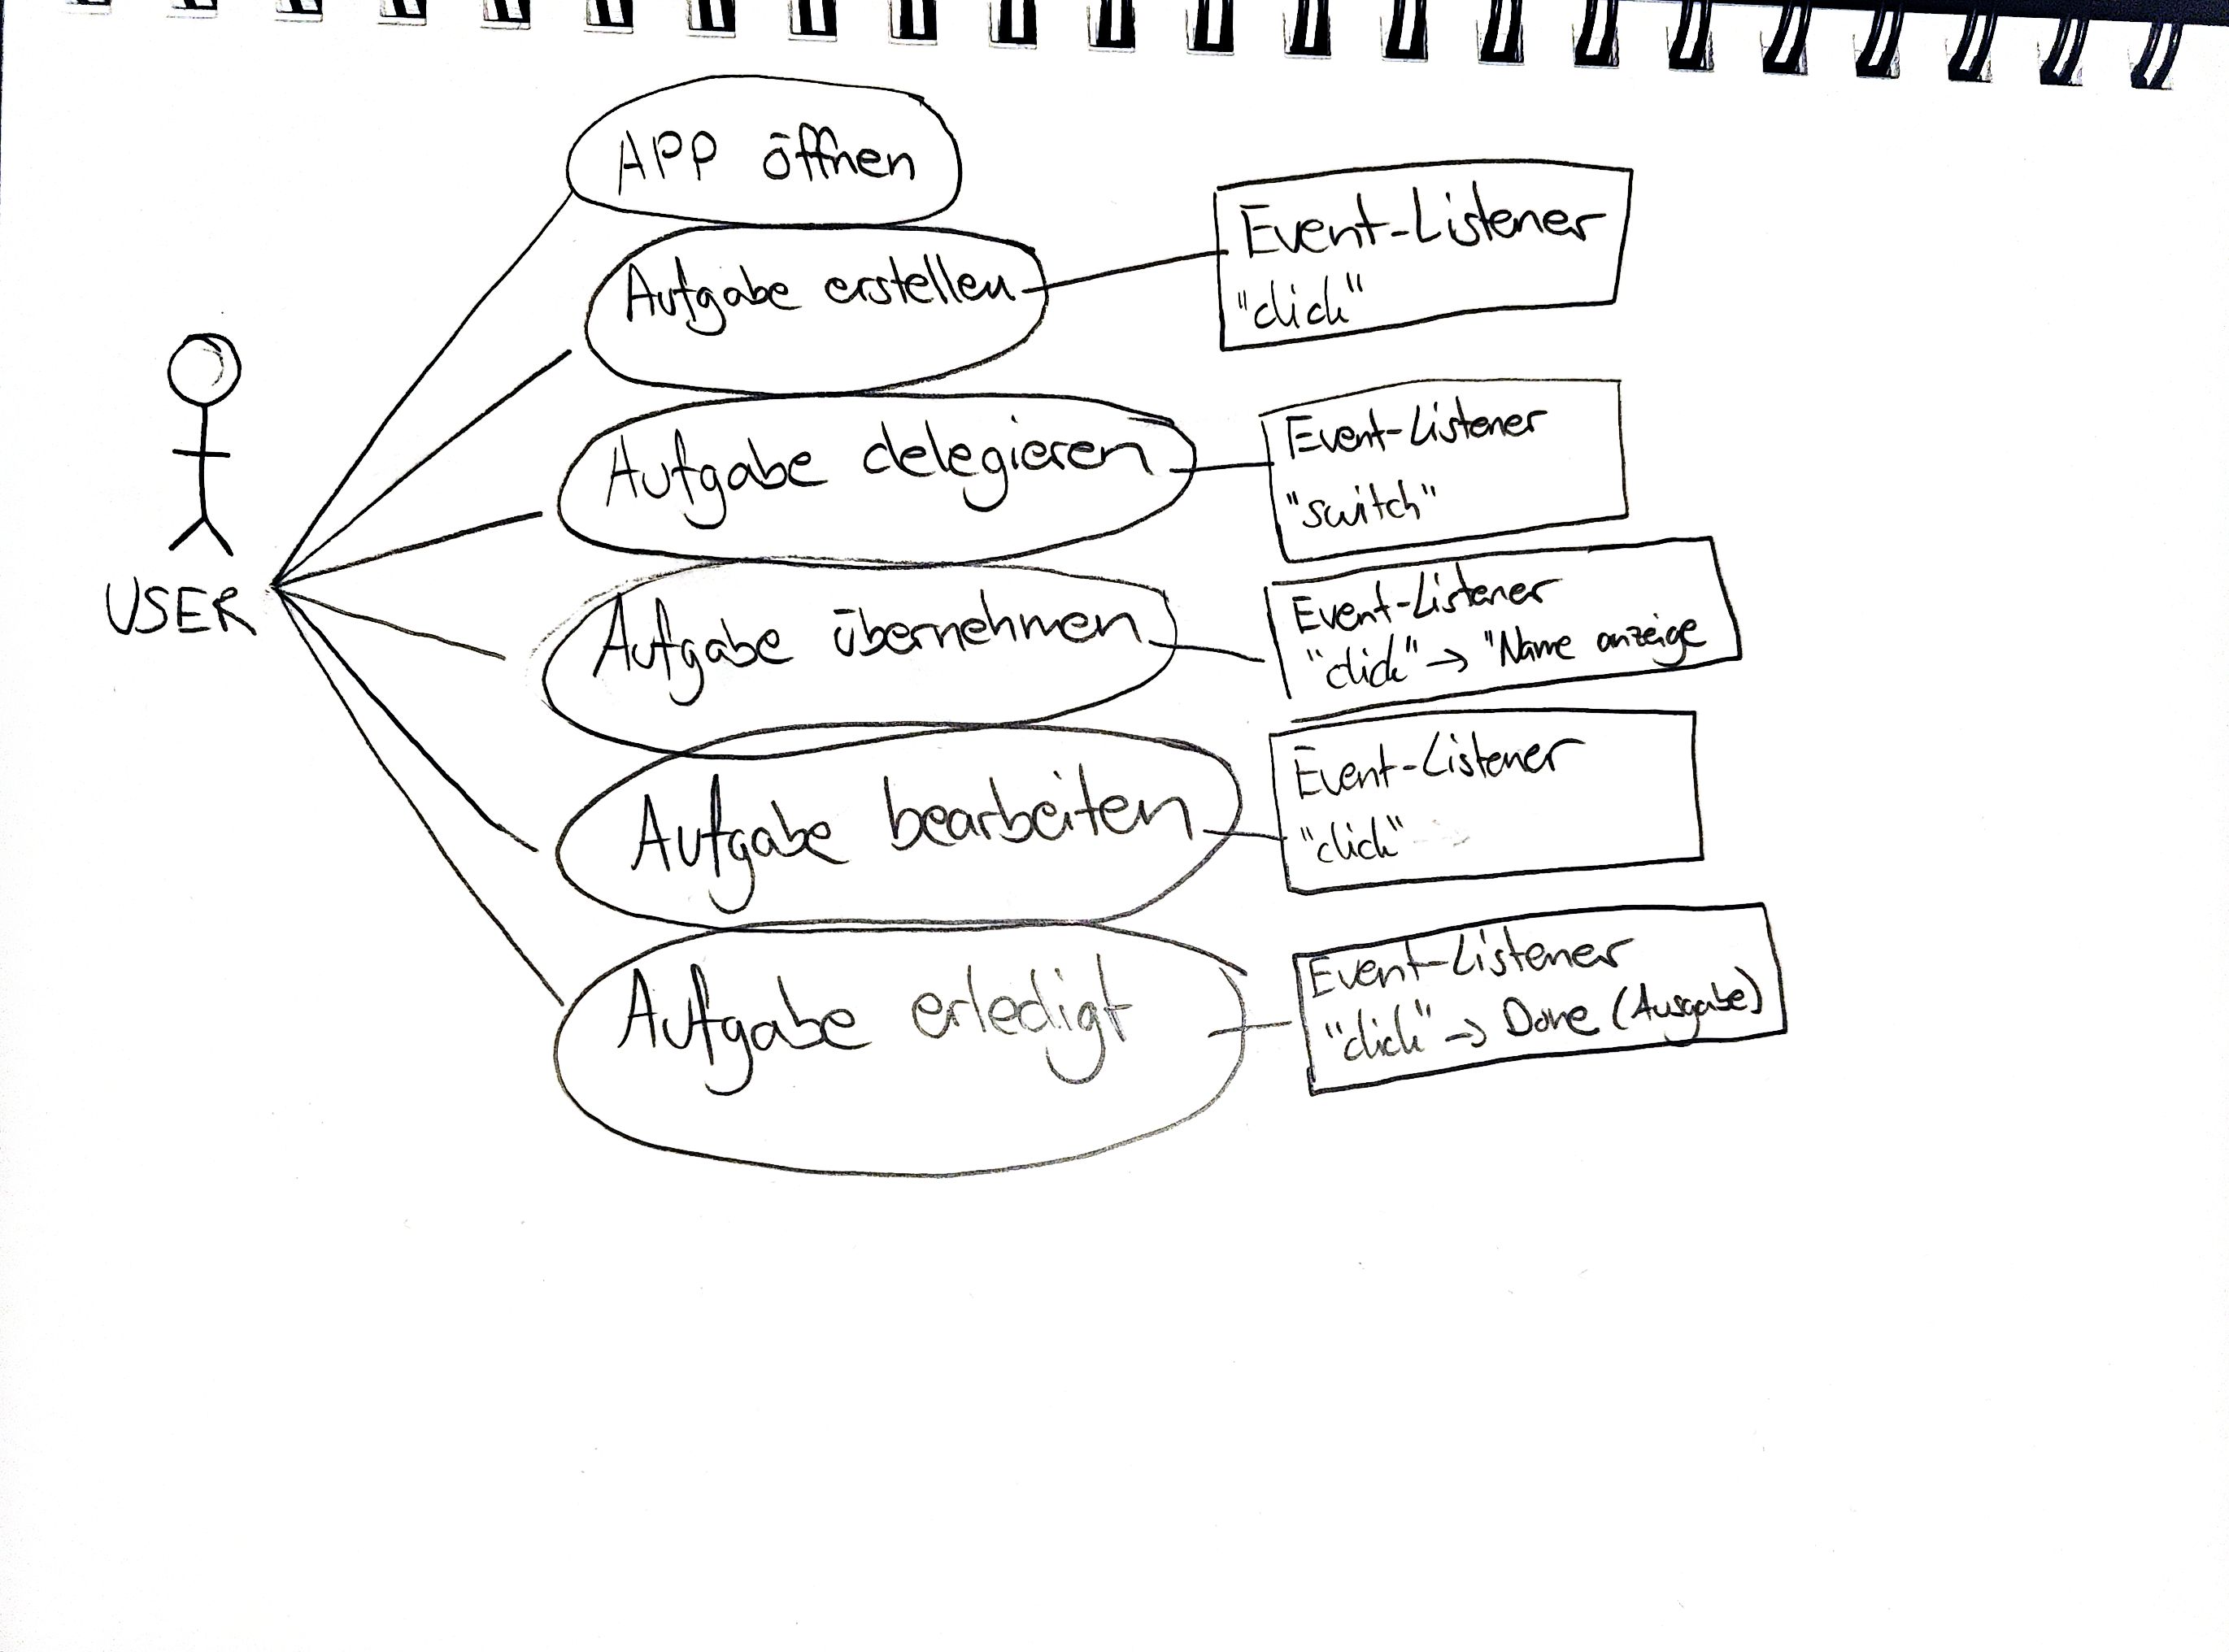 APP öffnen
Event-Listener
"click"
Aufgabe erstellen
Aufgabe delegieren
Event-Listener
"switch"
USER
Aufgabe übernehmen
Event-Listener
"click" → "Name anzeige
Aufgabe bearbeiten
Event-Listener
"click"
Aufgabe erledigt
Event-Listener
"click" → Done (Ausgabe)